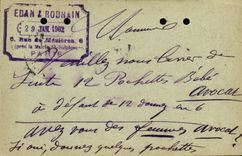 EDAN & RODHAIN
29 JAN 1902
6, Rue de Mézières, 6
(près la Mairie St-Sulpice)
PARIS
Monsieur
Veuillez nous livrer de
suite 12 Pochettes Bébé
avocat
à défaut de 12 donnez en 6
avez vous des femmes avocat
Si oui, donnez quelques pochettes